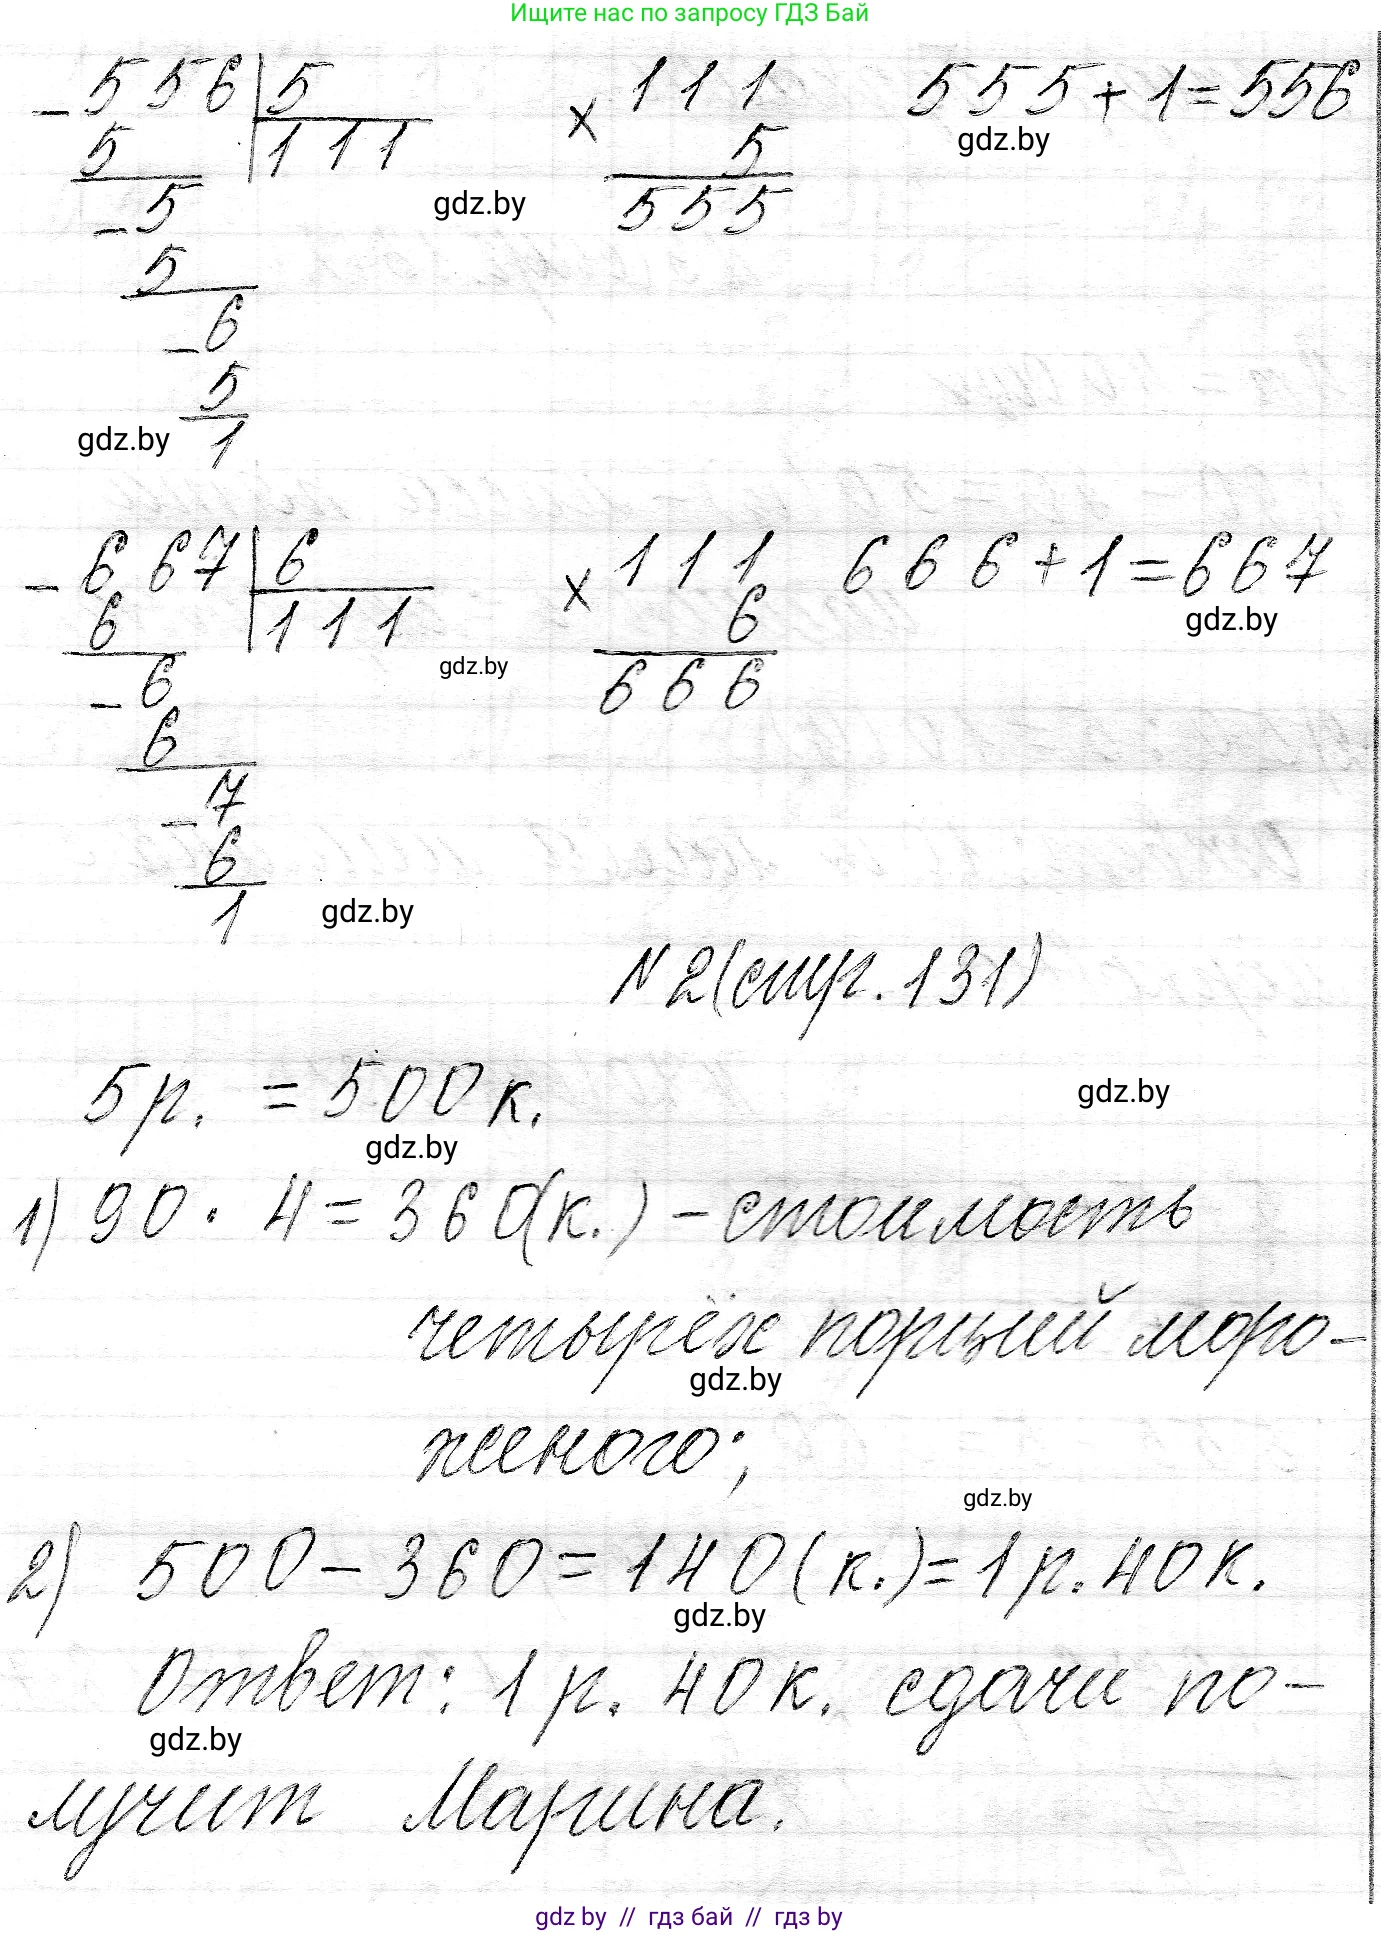 Ищите нас по запросу ГДЗ Бай
- 556 | 5 × 111 555 + 1 = 556
5 111 5 gdz.by
- 5 555 gdz.by
5
- 6
5
gdz.by 1
- 667 | 6 × 111 666 + 1 = 667
6 111 6 gdz.by
- 6 666 gdz.by
6
- 7
6
1 gdz.by
№2 (стр. 131)
5 р. = 500 к. gdz.by
gdz.by
1) 90 · 4 = 360 (к.) - стоимость
четырёх порций моро-
gdz.by
женого;
gdz.by
2) 500 - 360 = 140 (к.) = 1 р. 40 к.
gdz.by
Ответ: 1 р. 40 к. сдачи по-
gdz.by
лучит Марина.
gdz by // гдз бай // гдз by